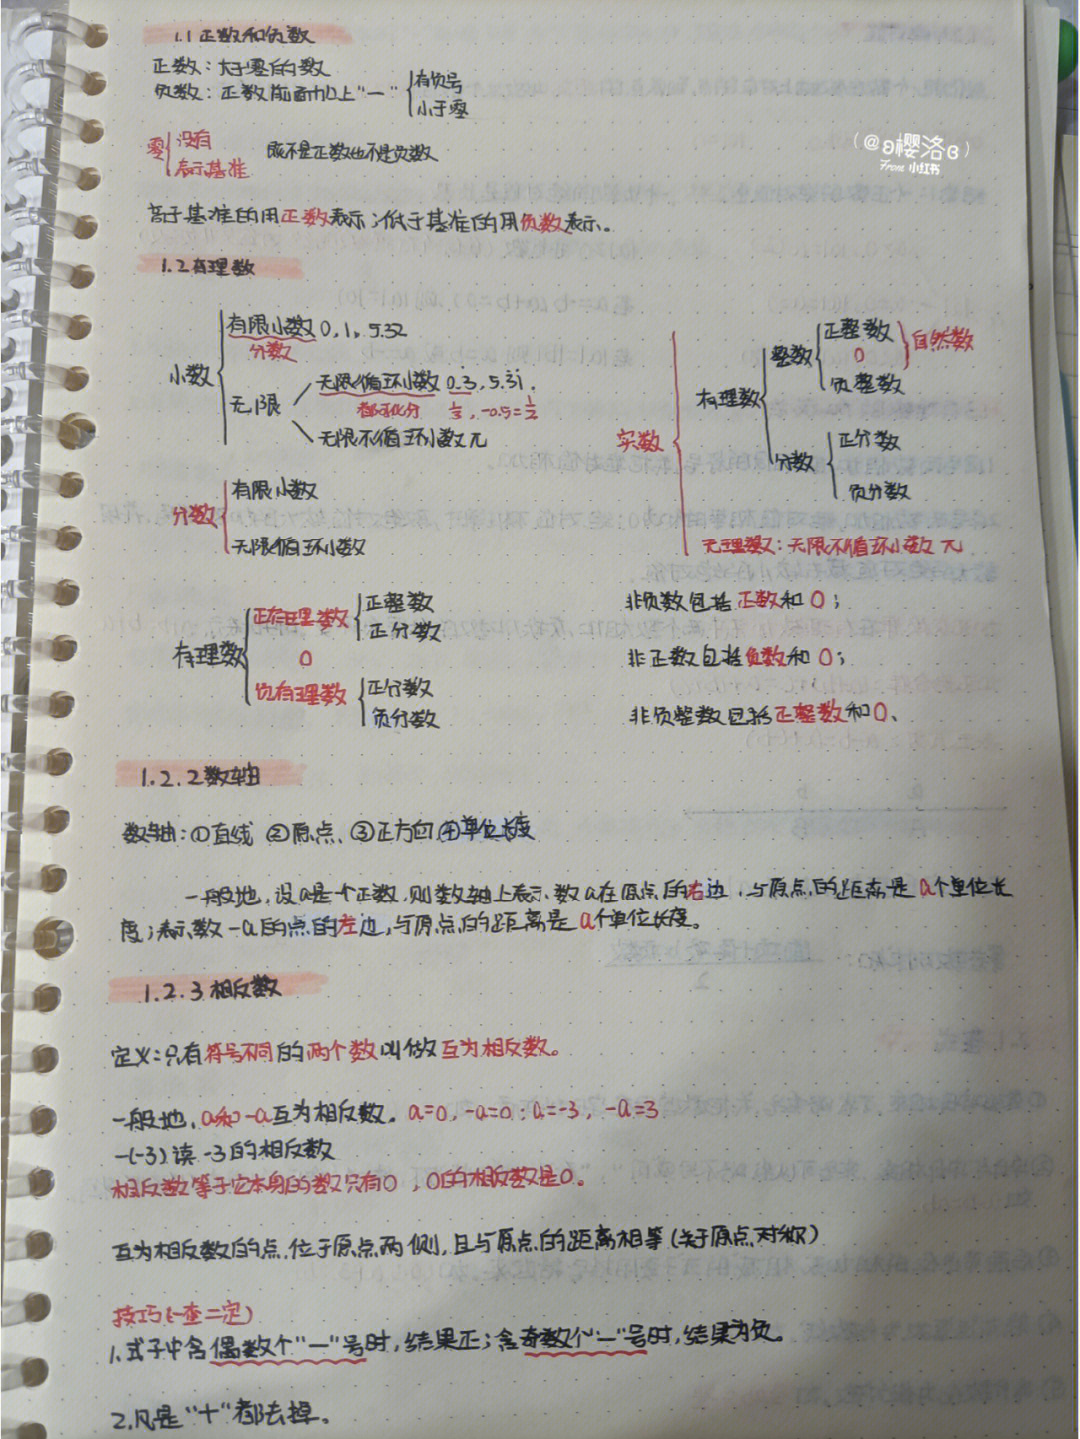 1.1 正数和负数
正数：大于零的数
负数：正数前面加上"—" 有负号
小于零
零 没有
表示基准 既不是正数也不是负数
(@ə樱洛ɞ)
From 小红书
高于基准的用正数表示；低于基准的用负数表示。
1.2有理数
小数
有限小数 0,1,5.32
分数
无限
无限循环小数 0.3̇, 5.3̇1̇.
都可化分 1/3, -0.5=1/2
无限不循环小数 π
分数
有限小数
无限循环小数
实数
有理数
整数
正整数
0
自然数
负整数
分数
正分数
负分数
无理数：无限不循环小数 π
有理数
正有理数
正整数
正分数
0
负有理数
正分数
负分数
非负数包括正数和0；
非正数包括负数和0；
非负整数包括正整数和0、
1.2.2数轴
数轴：①直线 ②原点、③正方向 ④单位长度
一般地，设a是一个正数，则数轴上表示数a在原点的右边，与原点的距离是a个单位长
度；表示数-a的点的左边，与原点的距离是a个单位长度。
1.2.3相反数
定义：只有符号不同的两个数叫做互为相反数。
一般地，a和-a互为相反数。a=0,-a=0；a=-3，-a=3
-(-3)读-3的相反数
相反数等于它本身的数只有0，0的相反数是0。
互为相反数的点，位于原点两侧，且与原点的距离相等（关于原点对称）
技巧(一查二定)
1.式子中含偶数个"—"号时，结果正；含奇数个"—"号时，结果为负。
2.凡是"+"都去掉。